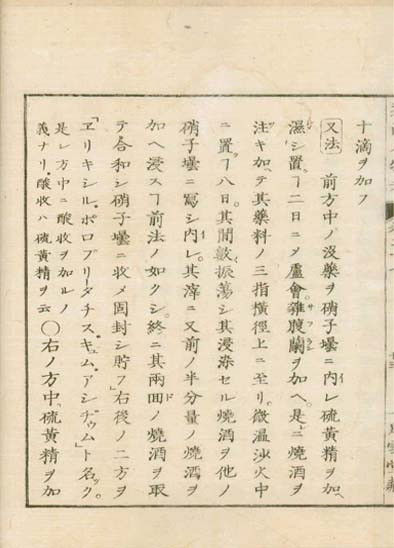 十滴ヲ加フ
又法 前方中ノ沒藥ヲ硝子壜ニ内レ硫黃精ヲ加ヘ
濕シ置ヿ二日ニメ盧會雜腹蘭ヲ加ヘ是ニ燒酒ヲ
注キ加ヘテ其藥料ノ三指橫徑上ニ至リ微温沙火中
ニ置ヿ八日其間數振蕩シ其浸染セル燒酒ヲ他ノ
硝子壜ニ寫シ内レ其滓ニ又前ノ半分量ノ燒酒ヲ
加ヘ浸スヿ前法ノ如クシ終ニ其兩囬ノ燒酒ヲ取
テ合和シ硝子壜ニ收メ固封シ貯フ」右後ノ二方ヲ
「ヱリキシル、ポロプリータチス、キュム、アシヂウム」ト名ツク
是レ方中ニ酸收ヲ加ルノ
義ナリ酸收ハ硫黃精ヲ云
〇右ノ方中、硫黃精ヲ加